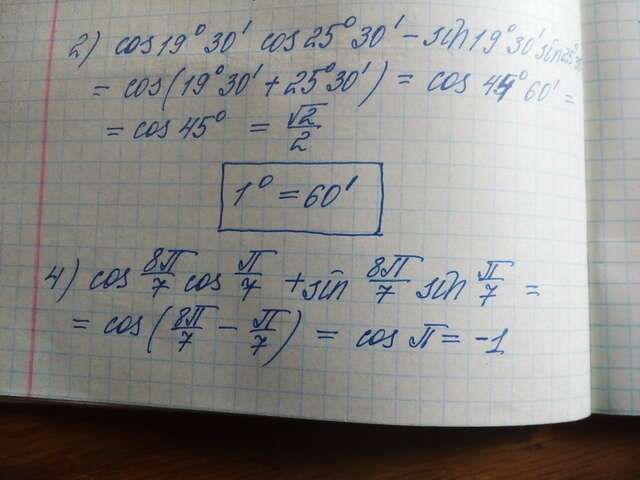 2) cos19°30' cos25°30' − sin19°30' sin25°30'
= cos(19°30' + 25°30') = cos 44°60' =
= cos45° = √2/2
1° = 60'
4) cos 8π/7 cos π/7 + sin 8π/7 sin π/7 =
= cos(8π/7 − π/7) = cos π = -1